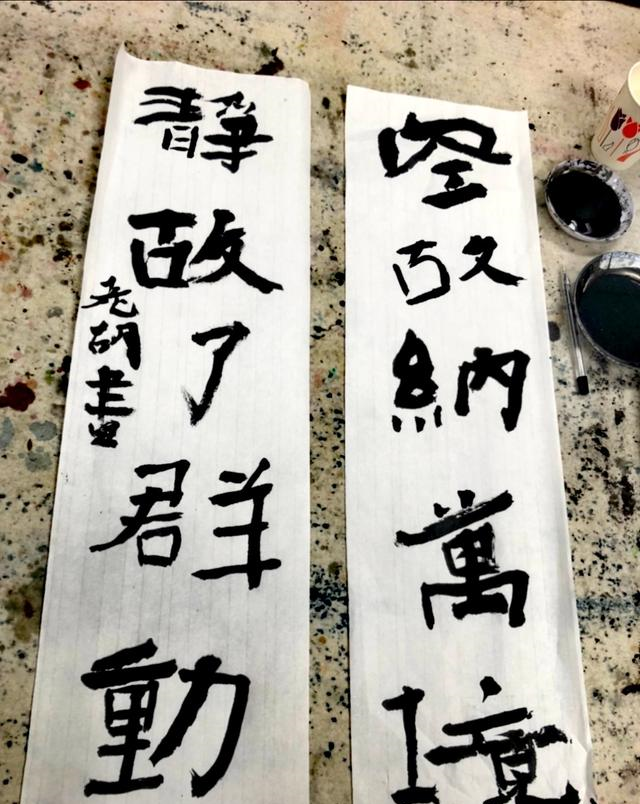 空故納萬境
靜故了群動
老胡書